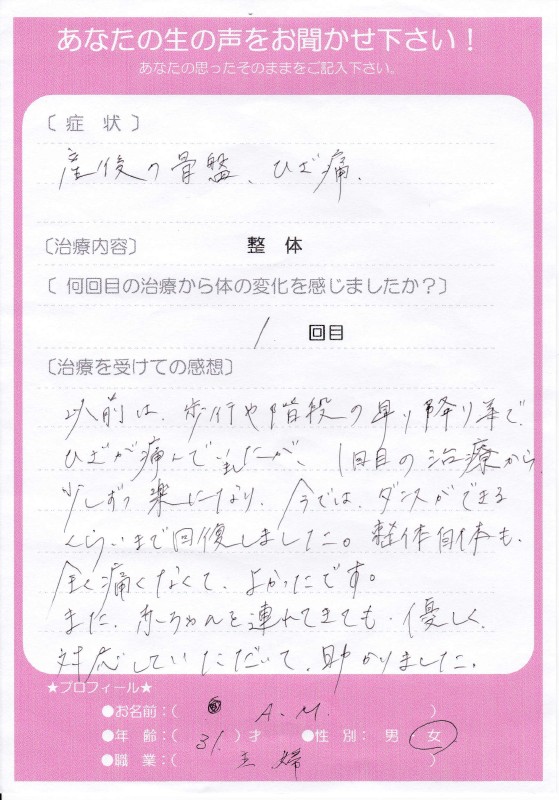 あなたの生の声をお聞かせ下さい！
あなたの思ったそのままをご記入下さい。
〔 症　状 〕
産後の骨盤、ひざ痛.
〔治療内容〕　整　体
〔 何回目の治療から体の変化を感じましたか？〕
1 回目
〔治療を受けての感想〕
以前は、歩行や階段の昇り降り等で
ひざが痛んでいましたが、1回目の治療から
少しずつ楽になり、今では、ダンスができる
くらいまで回復しました。整体自体も、
全く痛くなくて、よかったです。
また、赤ちゃんを連れてきても、優しく
対応していただいて、助かりました。
★プロフィール★
●お名前：( A.M. )
●年　齢：( 31. ) 才　●性　別： 男 ・ 女
●職　業：( 主婦 )